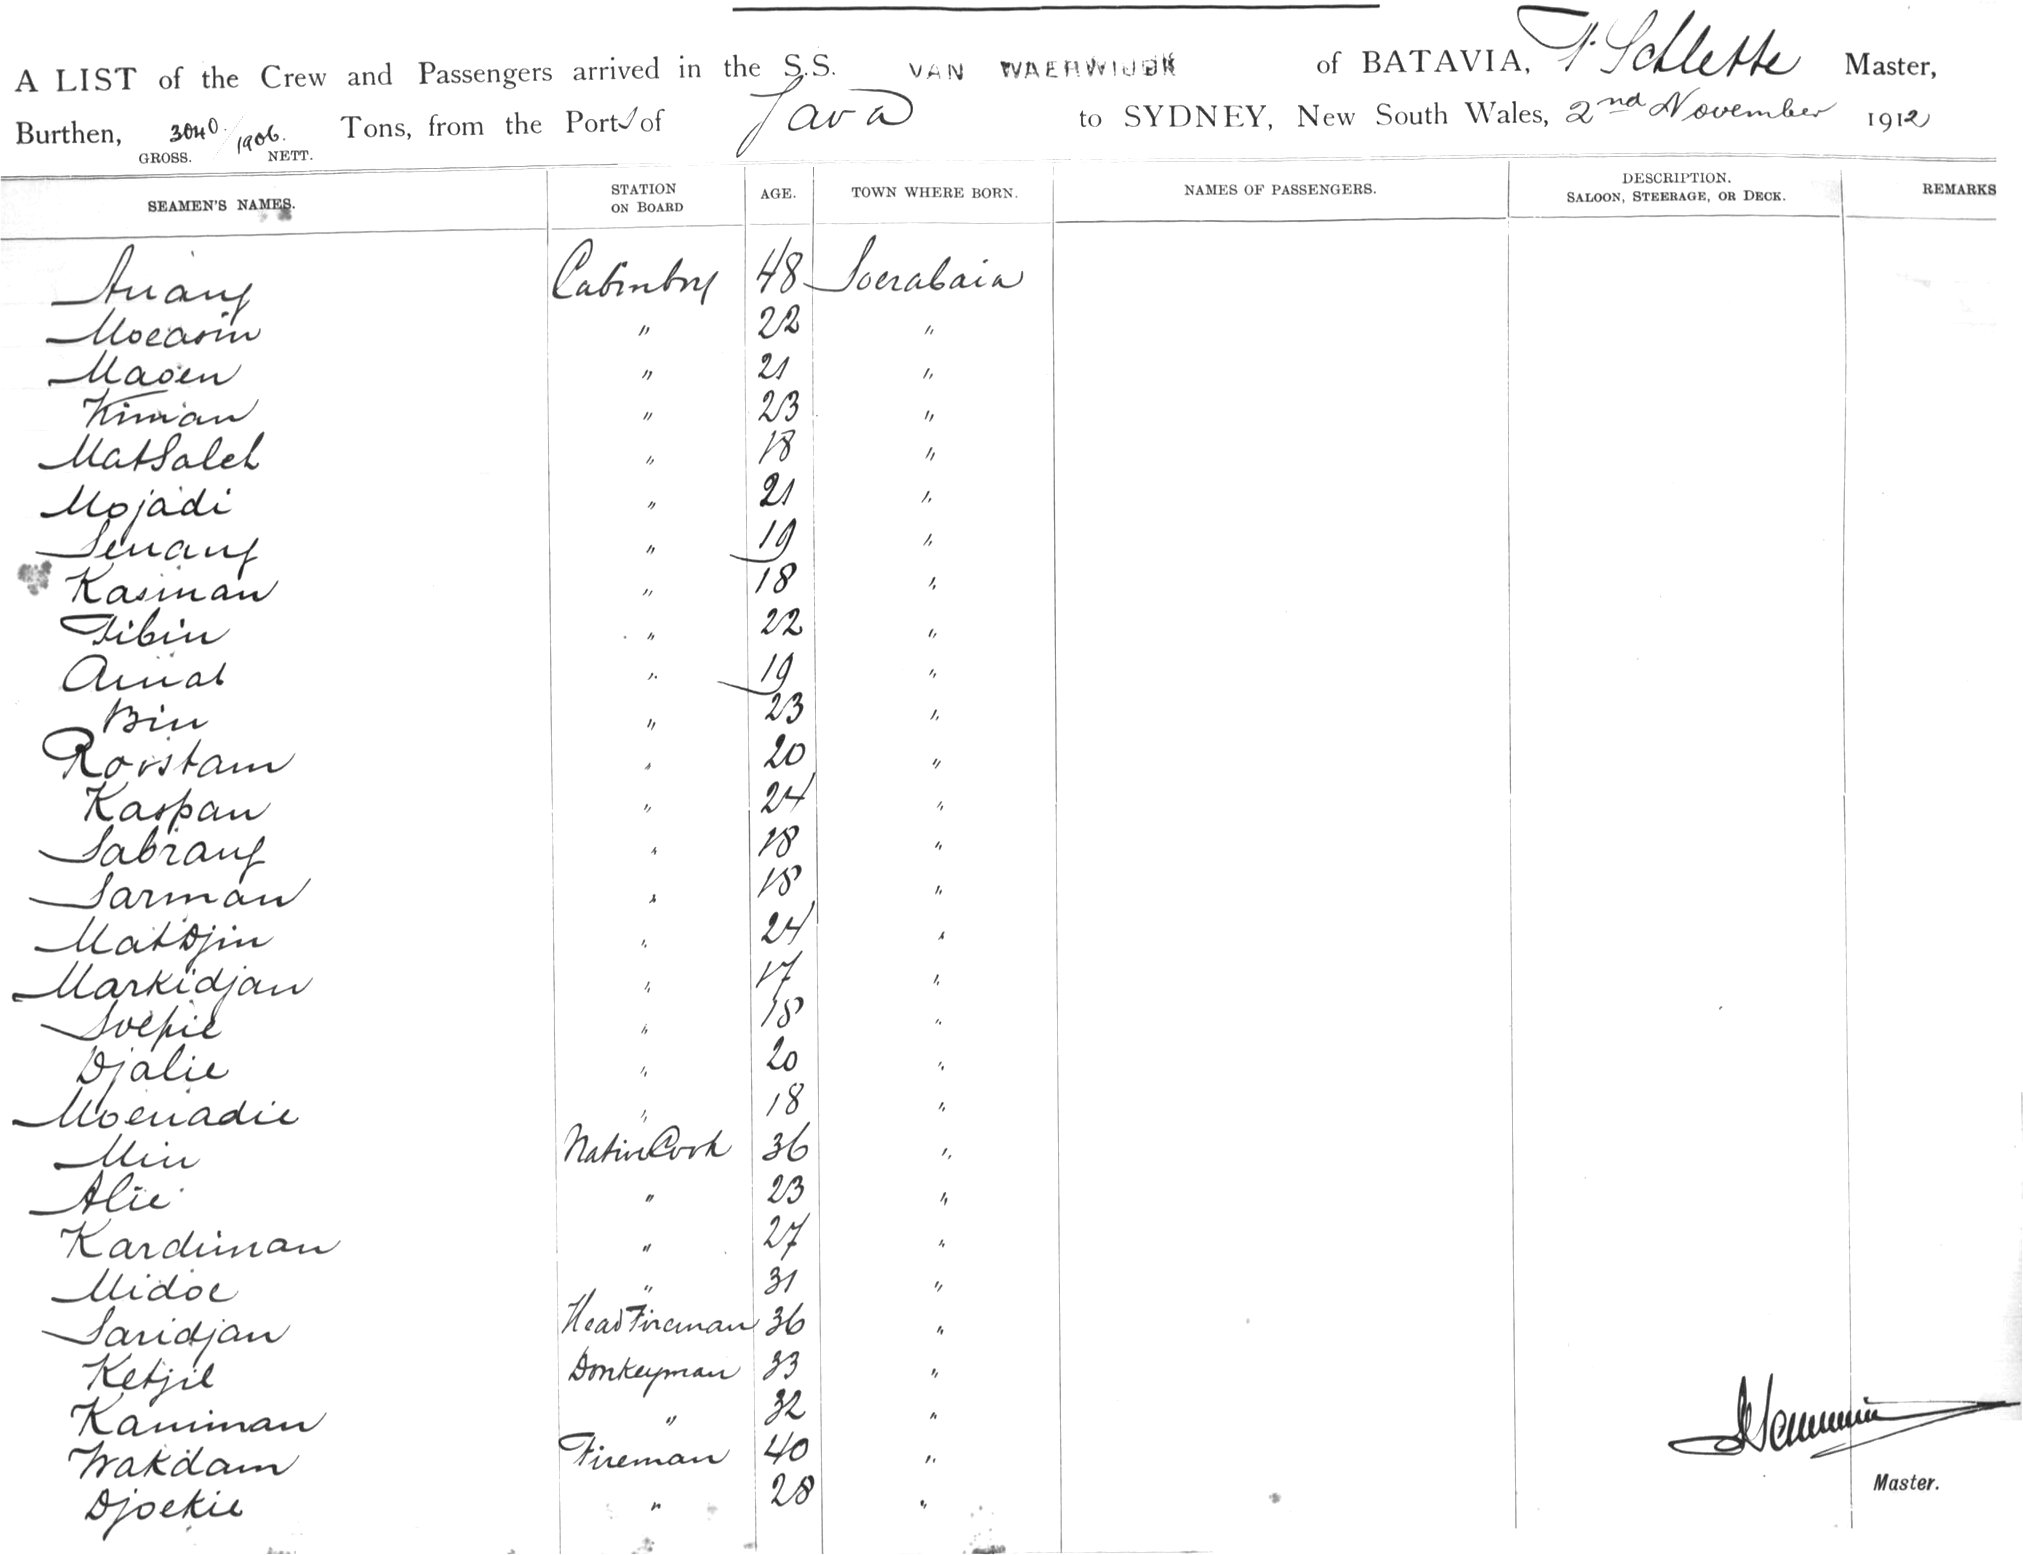 A LIST of the Crew and Passengers arrived in the S.S. VAN WAERWIJCK of BATAVIA, Master,
Burthen, 3040. / 1906. Tons, from the Ports of Java to SYDNEY, New South Wales, 2nd November 1912
GROSS. NETT.
SEAMEN'S NAMES. STATION ON BOARD AGE. TOWN WHERE BORN. NAMES OF PASSENGERS. DESCRIPTION. SALOON, STEERAGE, OR DECK. REMARKS
Anang Cabinboy 48 Soerabaia
Moearin " 22 "
Maoen " 21 "
Kiman " 23 "
MatSaleh " 18 "
Mojadi " 21 "
Senang " 19 "
Kasiman " 18 "
Tibin " 22 "
Amat " 19 "
Bin " 23 "
Roestam " 20 "
Kaspan " 24 "
Sabrang " 18 "
Sarman " 18 "
MatDjin " 24 "
Markidjan " 17 "
Soepie " 18 "
Djalie " 20 "
Moenadie " 18 "
Min Native Cook 36 "
Alie " 23 "
Kardiman " 27 "
Midoe " 31 "
Saridjan Head Fireman 36 "
Ketjil Donkeyman 33 "
Kaniman " 32 "
Wakdam Fireman 40 "
Djoekie " 28 "
Master.